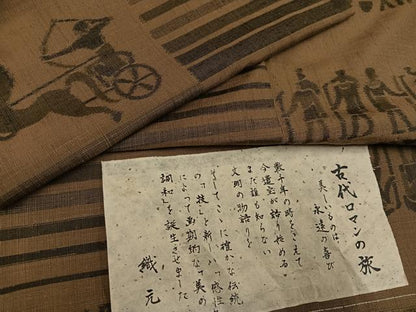 古代ロマンの旅
美しいものは
永遠の喜び
数千年の時をこえて
今遺宝が語り始める
まだ誰も知らない
文明の物語りを
そしてここに確かな伝統
の「技」と新しい「感性」
によって画期的な「美の
調和」を誕生させました
織元